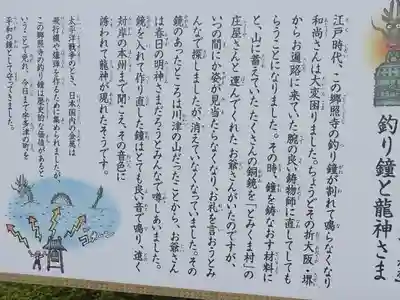 釣り鐘と龍神さま
江戸時代、この郷照寺の釣り鐘が割れて鳴らなくなり
和尚さんは大変困りました。ちょうどその折大阪・堺
からお遍路に来ていた腕の良い鋳物師に直してしても
らうことになりました。その時、鐘を鋳なおす材料に
と、山に蓄えていた、たくさんの銅鏡を「とみくま村」の
庄屋さんと運んでくれたお爺さんがいたのですが、
いつの間にか姿が見当たらなくなり、お礼を言おうとみ
んなで探しましたが、消えていなくなっています。その
鏡のあったところは川津の山だったことから、お爺さん
は春日の明神さまだろうとみんなで噂しあいました。
鏡を入れて作り直した鐘はとても良い音で鳴り、遠く
対岸の本州まで聞こえ、その音色に
誘われて龍神が現れたそうです。
太平洋戦争のとき、日本国内の金属は
飛行機や爆弾を作るために集められましたが、
この郷照寺の釣り鐘は歴史的な価値があると
いうことで免れ、今日まで宇多津の町を
平和の鐘として守ってきました。